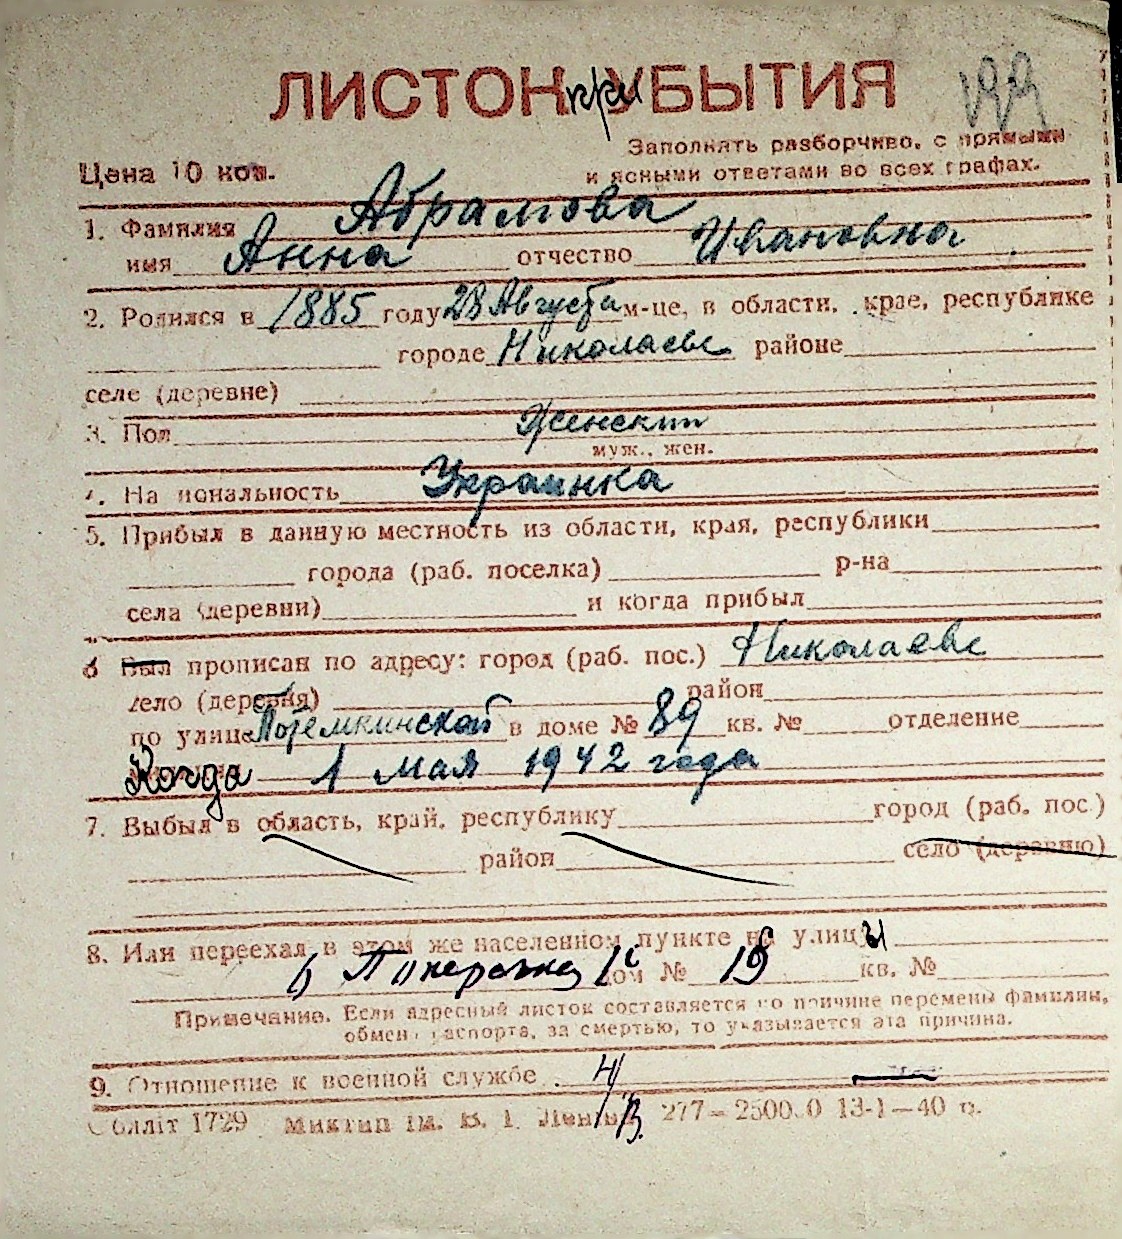 ЛИСТОК при УБЫТИЯ
Заполнять разборчиво, с прямыми
Цена 10 коп.
и ясными ответами во всех графах.
1. Фамилия Абрамова
имя Анна отчество Ивановна
2. Родился в 1885 году 28 Августа м-це, в области, крае, республике
городе Николаеве районе
селе (деревне)
3. Пол Женский
муж., жен.
4. Национальность Украинка
5. Прибыл в данную местность из области, края, республики
города (раб. поселка) р-на
села (деревни) и когда прибыл
6 Был прописан по адресу: город (раб. пос.) Николаеве
село (деревня) район
по улице Потемкинской в доме № 89 кв. № отделение
Когда 1 мая 1942 года
7. Выбыл в область, край, республику город (раб. пос.)
район село (деревню)
8. Или переехал в этом же населенном пункте на улицы
6 Поперечная дом № 19 кв. №
Примечание. Если адресный листок составляется по причине перемены фамилии,
обмена паспорта, за смертью, то указывается эта причина.
9. Отношение к военной службе Н/В.
Обліт 1729 ім. В. І. Леніна 277— 13-1—40 р.